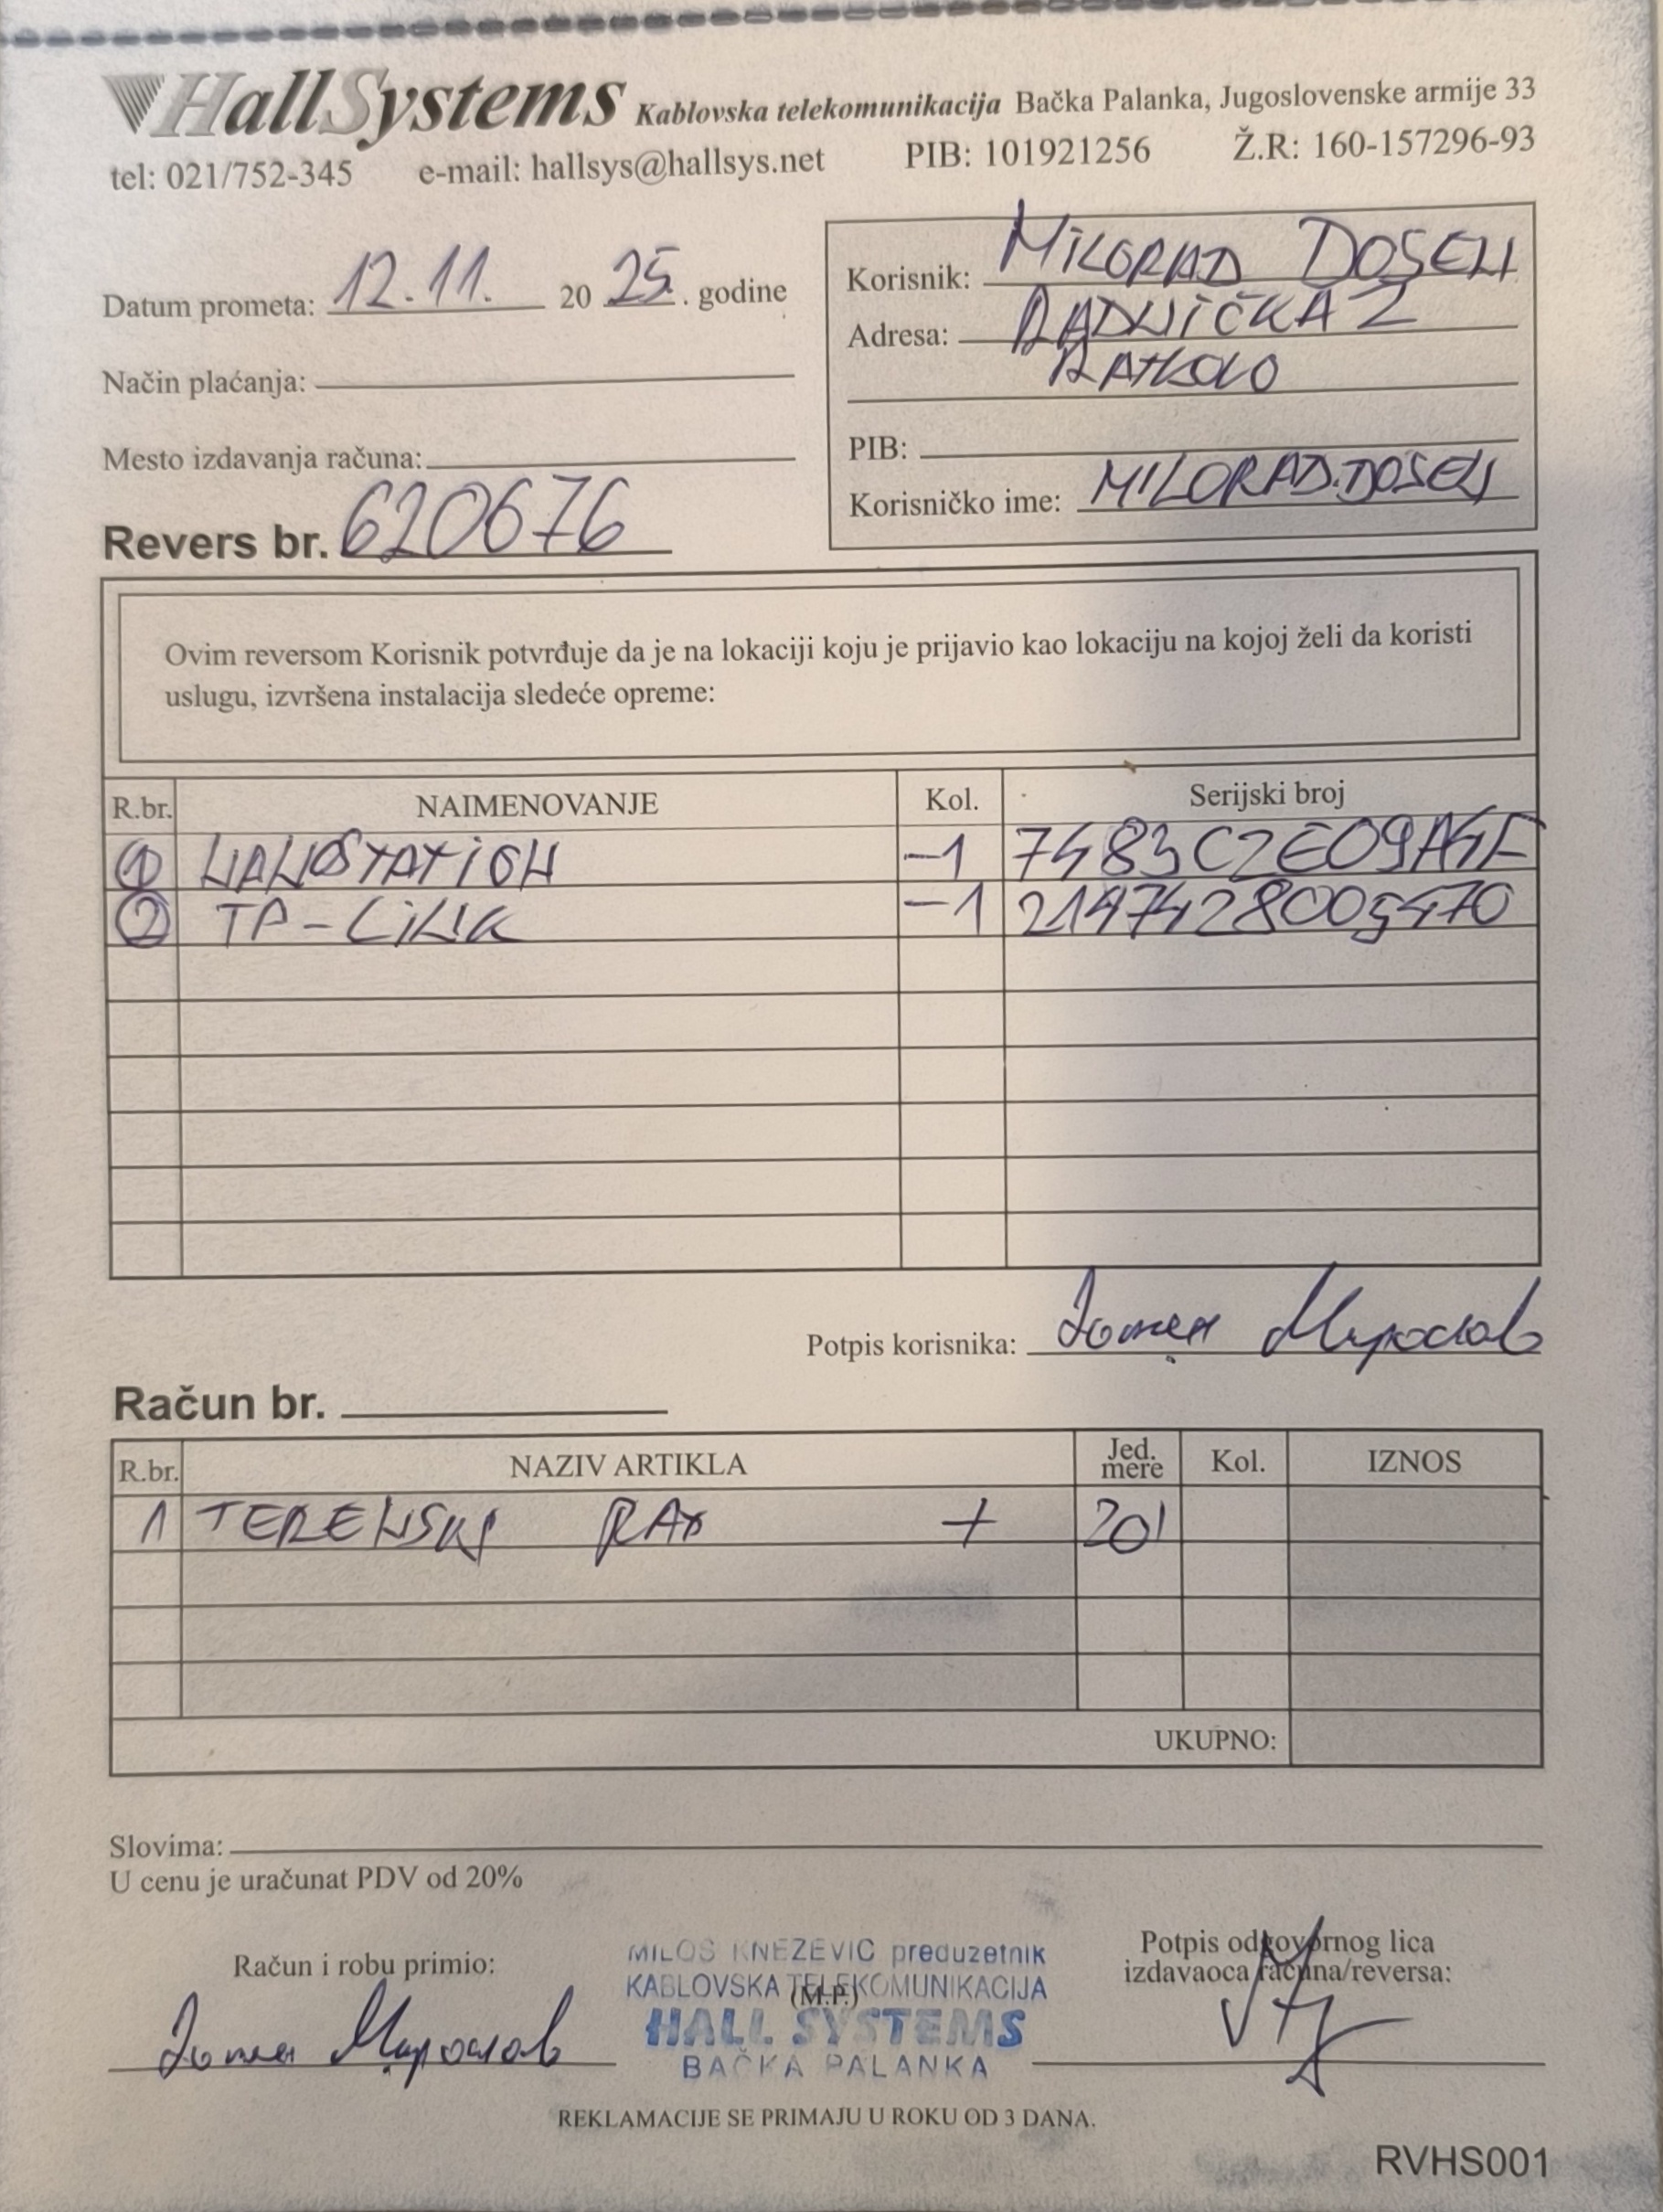 HallSystems Kablovska telekomunikacija Bačka Palanka, Jugoslovenske armije 33
tel: 021/752-345 e-mail: hallsys@hallsys.net PIB: 101921256 Ž.R: 160-157296-93
Datum prometa: 12.11. 20 25. godine
Način plaćanja:
Mesto izdavanja računa:
Revers br. 620676
Korisnik: MILORAD DOSELI
Adresa: RADNIČKA 2
RATKOVO
PIB:
Korisničko ime: MILORAD.DOSELI
Ovim reversom Korisnik potvrđuje da je na lokaciji koju je prijavio kao lokaciju na kojoj želi da koristi
uslugu, izvršena instalacija sledeće opreme:
R.br. NAIMENOVANJE Kol. Serijski broj
1 NANOSTATION -1
2 TP-LINK -1
Potpis korisnika:
Račun br.
R.br. NAZIV ARTIKLA Jed. mere Kol. IZNOS
1 TERENSKI RAD + 201
UKUPNO:
Slovima:
U cenu je uračunat PDV od 20%
Račun i robu primio:
MILOS KNEZEVIC preduzetnik
KABLOVSKA TELEKOMUNIKACIJA
(M.P.)
HALL SYSTEMS
BAČKA PALANKA
Potpis odgovornog lica
izdavaoca računa/reversa:
REKLAMACIJE SE PRIMAJU U ROKU OD 3 DANA.
RVHS001